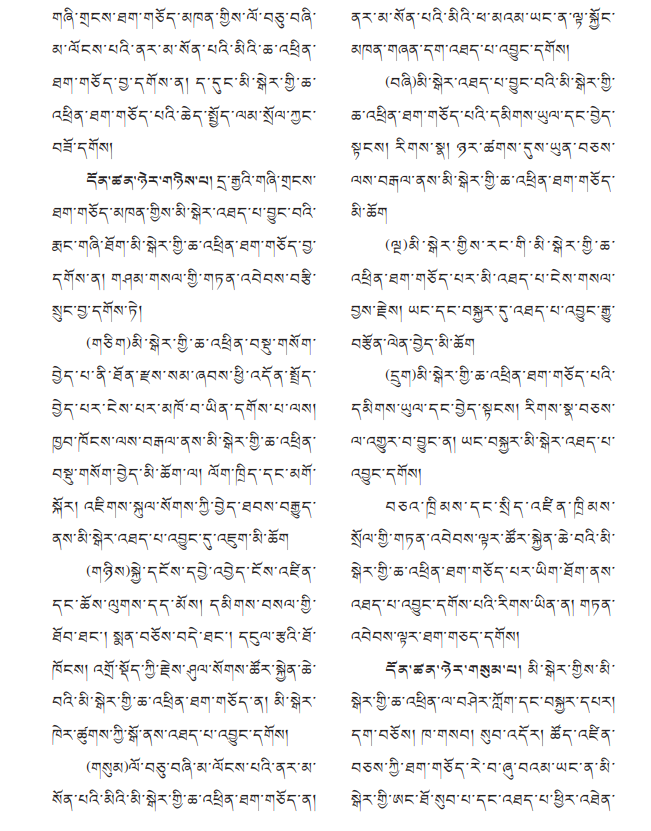 གཞི་གྲངས་ཐག་གཅོད་མཁན་གྱིས་ལོ་བཅུ་བཞི་
མ་ལོངས་པའི་ནར་མ་སོན་པའི་མིའི་ཆ་འཕྲིན་
ཐག་གཅོད་བྱ་དགོས་ན། ད་དུང་མི་སྒེར་གྱི་ཆ་
འཕྲིན་ཐག་གཅོད་པའི་ཆེད་སྤྱོད་ལམ་སྲོལ་ཀྱང་
བཟོ་དགོས།
དོན་ཚན་ཉེར་གཉིས་པ། དྲ་རྒྱའི་གཞི་གྲངས་
ཐག་གཅོད་མཁན་གྱིས་མི་སྒེར་འཐད་པ་བྱུང་བའི་
རྨང་གཞི་ཐོག་མི་སྒེར་གྱི་ཆ་འཕྲིན་ཐག་གཅོད་བྱ་
དགོས་ན། གཤམ་གསལ་གྱི་གཏན་འབེབས་བརྩི་
སྲུང་བྱ་དགོས་ཏེ།
(གཅིག)མི་སྒེར་གྱི་ཆ་འཕྲིན་བསྡུ་གསོག་
བྱེད་པ་ནི་ཐོན་རྫས་སམ་ཞབས་ཕྱི་འདོན་སྤྲོད་
བྱེད་པར་ངེས་པར་མཁོ་བ་ཡིན་དགོས་པ་ལས།
ཁྱབ་ཁོངས་ལས་བརྒལ་ནས་མི་སྒེར་གྱི་ཆ་འཕྲིན་
བསྡུ་གསོག་བྱེད་མི་ཆོག་ལ། ལོག་ཁྲིད་དང་མགོ་
སྐོར། འཇིགས་སྐུལ་སོགས་ཀྱི་བྱེད་ཐབས་བརྒྱུད་
ནས་མི་སྒེར་འཐད་པ་འབྱུང་དུ་འཇུག་མི་ཆོག
(གཉིས)སྐྱེ་དངོས་དབྱེ་འབྱེད་ངོས་འཛིན་
དང་ཆོས་ལུགས་དད་མོས། དམིགས་བསལ་གྱི་
ཐོབ་ཐང་། སྨན་བཅོས་བདེ་ཐང་། དངུལ་རྩའི་ཐོ་
ཁོངས། འགྲོ་སྡོད་ཀྱི་རྗེས་ཤུལ་སོགས་ཚོར་སྐྱེན་ཆེ་
བའི་མི་སྒེར་གྱི་ཆ་འཕྲིན་ཐག་གཅོད་ན། མི་སྒེར་
ཁེར་ཚུགས་ཀྱི་སྒོ་ནས་འཐད་པ་འབྱུང་དགོས།
(གསུམ)ལོ་བཅུ་བཞི་མ་ལོངས་པའི་ནར་མ་
སོན་པའི་མིའི་མི་སྒེར་གྱི་ཆ་འཕྲིན་ཐག་གཅོད་ན།
ནར་མ་སོན་པའི་མིའི་ཕ་མའམ་ཡང་ན་ལྟ་སྐྱོང་
མཁན་གཞན་དག་འཐད་པ་འབྱུང་དགོས།
(བཞི)མི་སྒེར་འཐད་པ་བྱུང་བའི་མི་སྒེར་གྱི་
ཆ་འཕྲིན་ཐག་གཅོད་པའི་དམིགས་ཡུལ་དང་བྱེད་
སྟངས། རིགས་སྣ། ཉར་ཚགས་དུས་ཡུན་བཅས་
ལས་བརྒལ་ནས་མི་སྒེར་གྱི་ཆ་འཕྲིན་ཐག་གཅོད་
མི་ཆོག
(ལྔ)མི་སྒེར་གྱིས་རང་གི་མི་སྒེར་གྱི་ཆ་
འཕྲིན་ཐག་གཅོད་པར་མི་འཐད་པ་ངེས་གསལ་
བྱས་རྗེས། ཡང་དང་བསྐྱར་དུ་འཐད་པ་འབྱུང་རྒྱུ་
བརྩོན་ལེན་བྱེད་མི་ཆོག
(དྲུག)མི་སྒེར་གྱི་ཆ་འཕྲིན་ཐག་གཅོད་པའི་
དམིགས་ཡུལ་དང་བྱེད་སྟངས། རིགས་སྣ་བཅས་
ལ་འགྱུར་བ་བྱུང་ན། ཡང་བསྐྱར་མི་སྒེར་འཐད་པ་
འབྱུང་དགོས།
བཅའ་ཁྲིམས་དང་སྲིད་འཛིན་ཁྲིམས་
སྲོལ་གྱི་གཏན་འབེབས་ལྟར་ཚོར་སྐྱེན་ཆེ་བའི་མི་
སྒེར་གྱི་ཆ་འཕྲིན་ཐག་གཅོད་པར་ཡིག་ཐོག་ནས་
འཐད་པ་འབྱུང་དགོས་པའི་རིགས་ཡིན་ན། གཏན་
འབེབས་ལྟར་ཐག་གཅད་དགོས།
དོན་ཚན་ཉེར་གསུམ་པ། མི་སྒེར་གྱིས་མི་
སྒེར་གྱི་ཆ་འཕྲིན་ལ་བཤེར་ཀློག་དང་བསྐྱར་དཔར།
དག་བཅོས། ཁ་གསབ། སུབ་འདོར། ཚོད་འཛིན་
བཅས་ཀྱི་ཐག་གཅོད་རེ་བ་ཞུ་བའམ་ཡང་ན་མི་
སྒེར་གྱི་ཨང་ཐོ་སུབ་པ་དང་འཐད་པ་ཕྱིར་འཐེན་